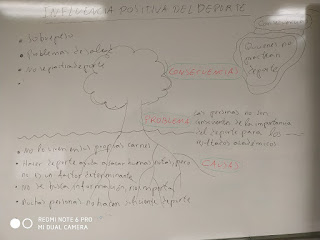 INFLUENCIA POSITIVA DEL DEPORTE
• Sobrepeso
• Problemas de salud
• No se practica deporte
•
Quienes no
practican
deporte
CONSECUENCIA
PROBLEMA
Las personas no son
conscientes de la importancia
del deporte para los
resultados académicos
CAUSAS
• No se dan en sus propias carnes
• Hacer deporte ayuda a sacar buenas notas, pero
no es un factor determinante
• No se busca información, no importa
• Muchas personas no hacen suficiente deporte
REDMI NOTE 6 PRO
MI DUAL CAMERA